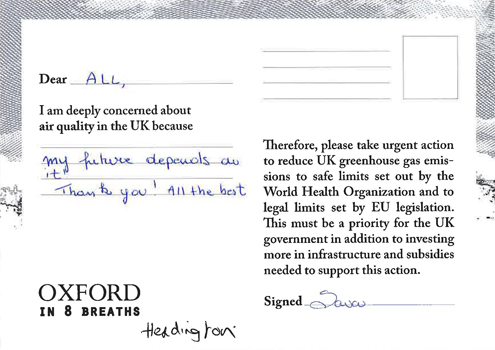 Dear ALL,
I am deeply concerned about
air quality in the UK because
my future depends on
it"
Thank you! All the best
OXFORD
IN 8 BREATHS
Headington
Therefore, please take urgent action
to reduce UK greenhouse gas emis-
sions to safe limits set out by the
World Health Organization and to
legal limits set by EU legislation.
This must be a priority for the UK
government in addition to investing
more in infrastructure and subsidies
needed to support this action.
Signed